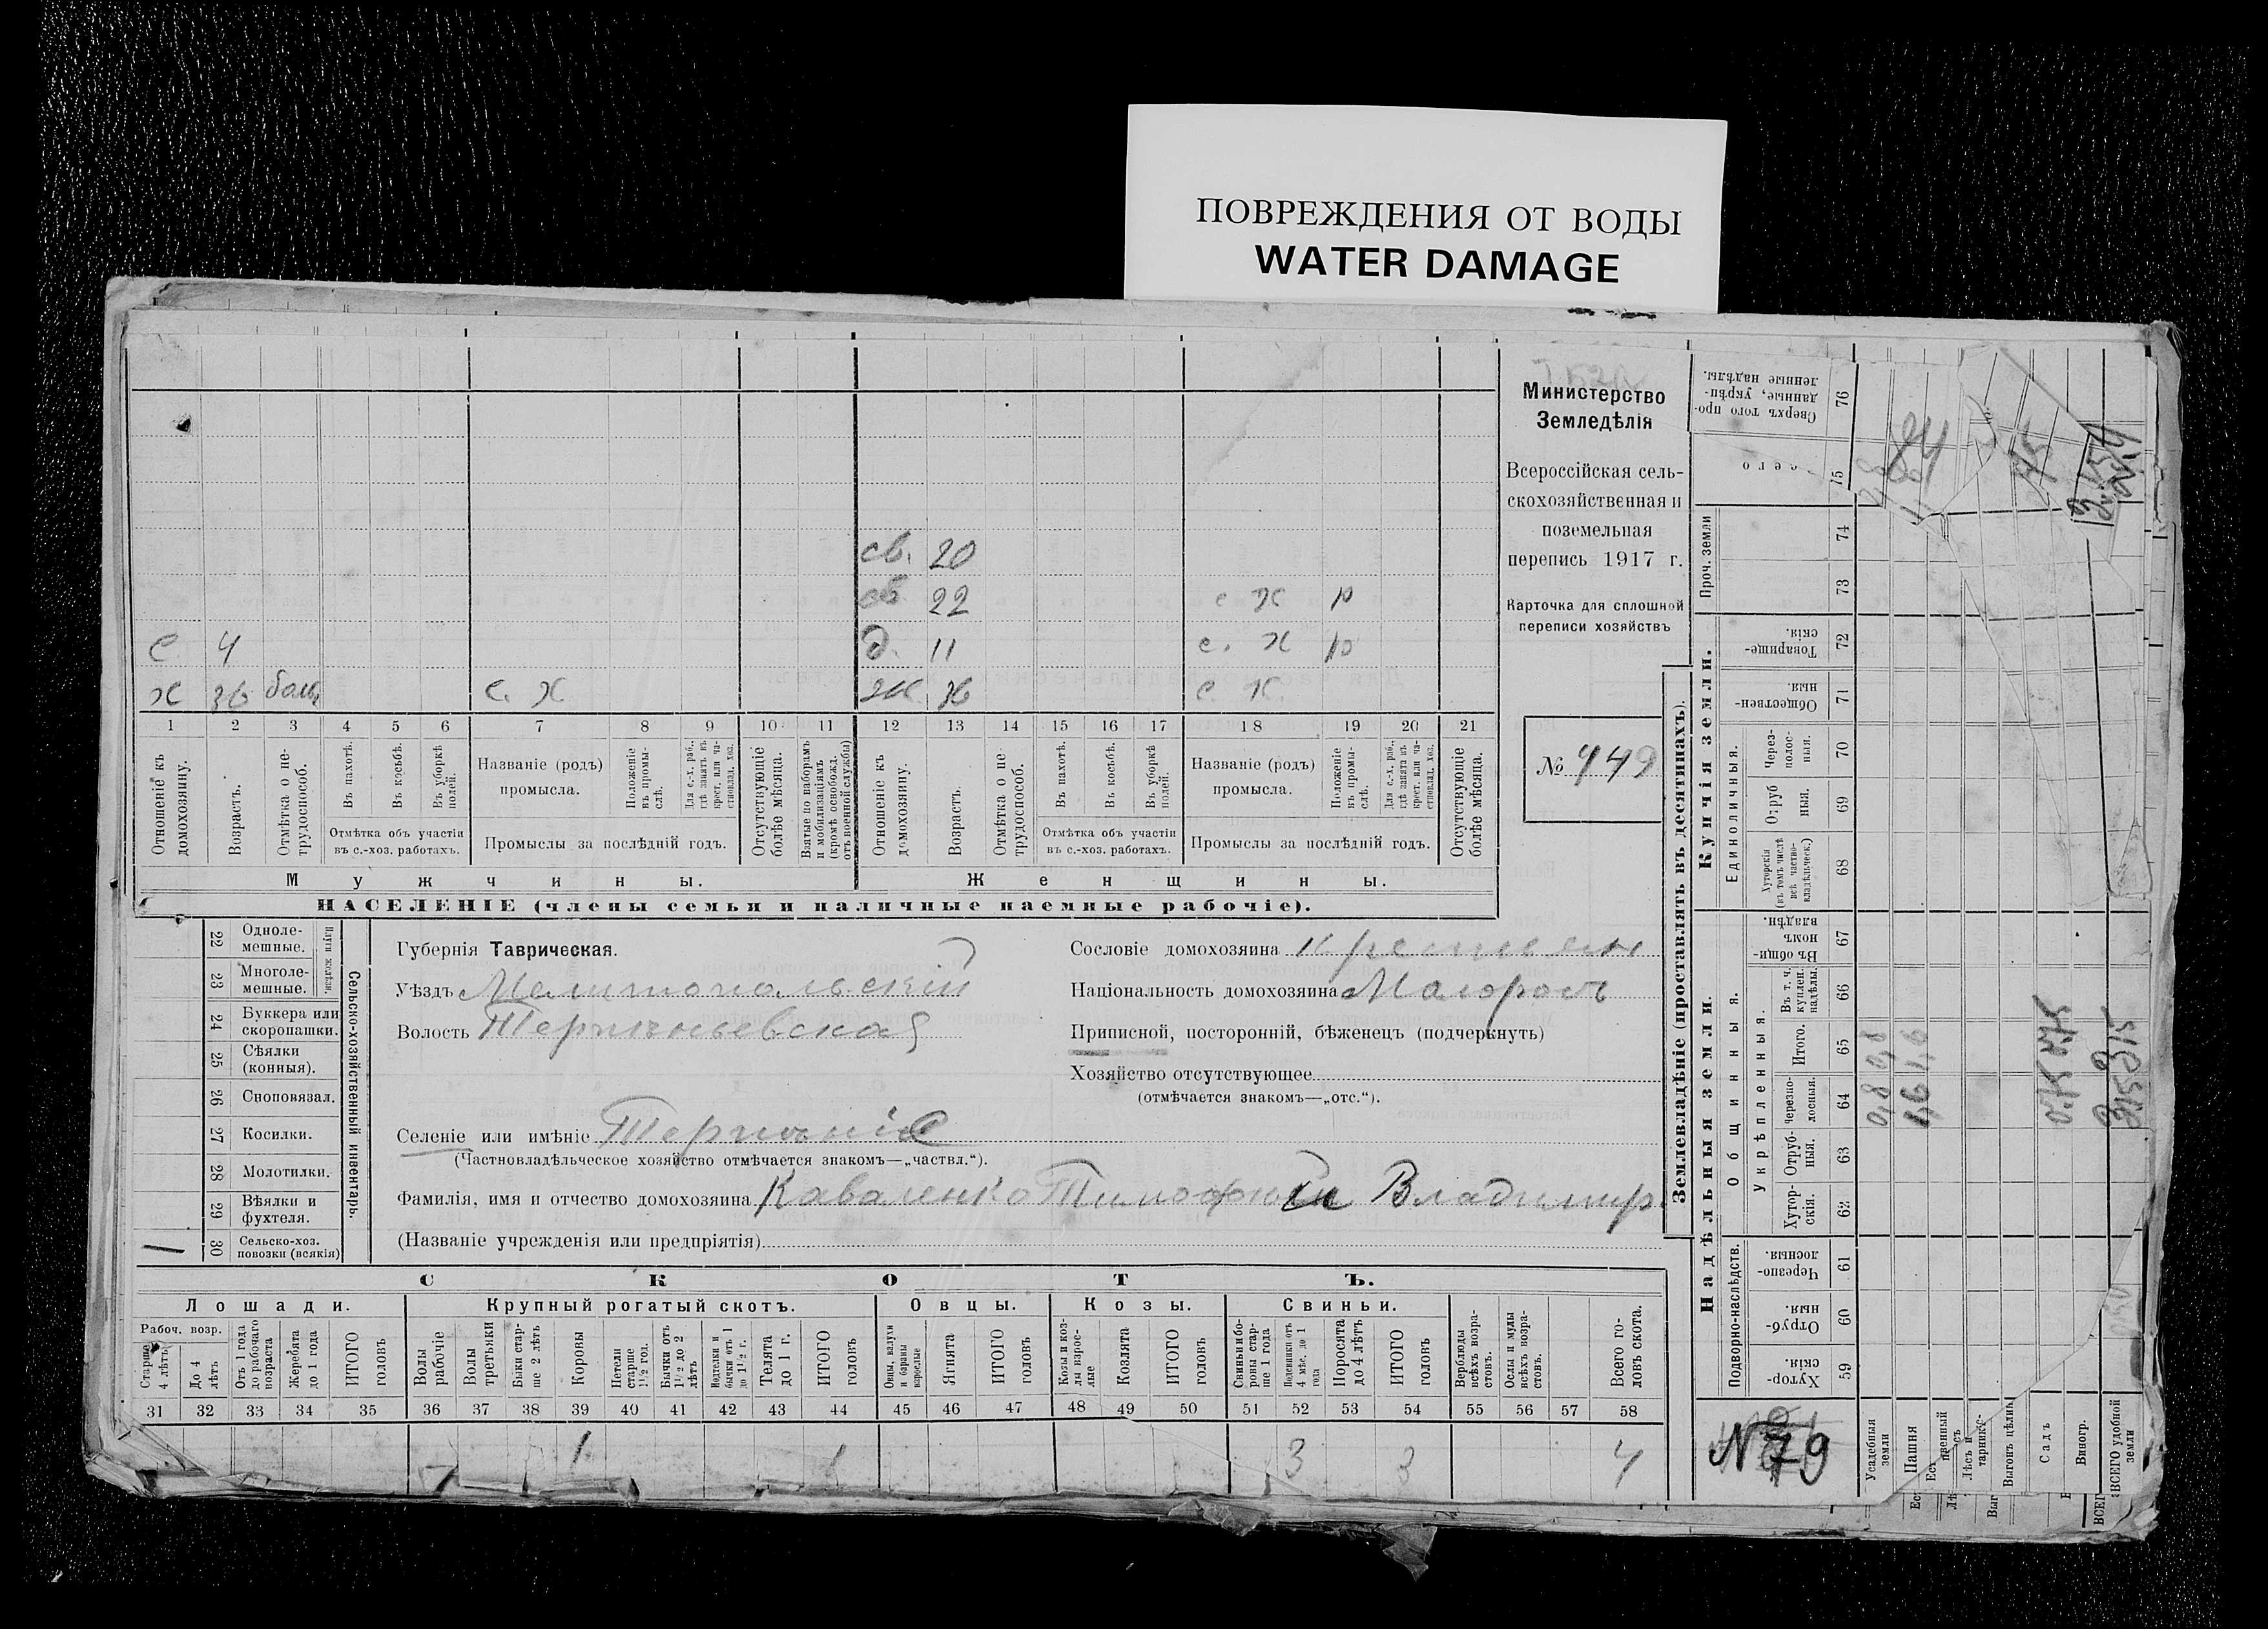 ПОВРЕЖДЕНИЯ ОТ ВОДЫ
WATER DAMAGE
св. 20
св 22 с х р
с 4 д. 11 с. х р
х 36 с. х 36 с х.
1 2 3 4 5 6 7 8 9 10 11 12 13 14 15 16 17 18 19 20 21
Отношеніе къ домохозяину.
Возрастъ.
Отмѣтка о не-трудоспособ.
Въ пахотѣ.
Въ косьбѣ.
Въ уборкѣ полей.
Отмѣтка объ участіи въ с.-хоз. работахъ.
Названіе (родъ) промысла.
Положеніе въ промы-слѣ.
Для с.-х. раб., гдѣ занятъ въ крест. или ча-стновлад. хоз.
Промыслы за послѣдній годъ.
Отсутствующіе болѣе мѣсяца.
Взятые по наборамъ и мобилизаціямъ (кромѣ освобожд. отъ военной службы)
Отношеніе къ домохозяину.
Возрастъ.
Отмѣтка о не-трудоспособ.
Въ пахотѣ.
Въ косьбѣ.
Въ уборкѣ полей.
Отмѣтка объ участіи въ с.-хоз. работахъ.
Названіе (родъ) промысла.
Положеніе въ промы-слѣ.
Для с.-х. раб., гдѣ занята въ крест. или ча-стновлад. хоз.
Промыслы за послѣдній годъ.
Отсутствующіе болѣе мѣсяца.
Мужчины. Женщины.
НАСЕЛЕНІЕ (члены семьи и наличные наемные рабочіе).
Министерство
Земледѣлія
Всероссійская сель-
скохозяйственная и
поземельная
перепись 1917 г.
Карточка для сплошной
переписи хозяйствъ
№ 449
Сельско-хозяйственный инвентарь.
Плуги желѣзн.
22 Одноле-мешные.
23 Многоле-мешные.
24 Буккера или скоропашки.
25 Сѣялки (конныя).
26 Сноповязал.
27 Косилки.
28 Молотилки.
29 Вѣялки и фухтеля.
30 Сельско-хоз. повозки (всякія) 1
Губернія Таврическая.
Уѣздъ Мелитопольскій
Волость Терпѣньевская
Селеніе или имѣніе Терпѣніе
(Частновладѣльческое хозяйство отмѣчается знакомъ—„частвл.“).
Фамилія, имя и отчество домохозяина Каваленко Тимофей Владимир.
(Названіе учрежденія или предпріятія)
Сословіе домохозяина крестьян
Національность домохозяина Малоросъ
Приписной, посторонній, бѣженецъ (подчеркнуть)
Хозяйство отсутствующее
(отмѣчается знакомъ—„отс.“).
СКОТЪ.
Лошади. Крупный рогатый скотъ. Овцы. Козы. Свиньи.
Рабоч. возр.
Старше 4 лѣтъ
До 4 лѣтъ
Отъ 1 года до рабочаго возраста
Жеребята до 1 года
ИТОГО головъ
Волы рабочіе
Волы третьяки
Быки стар-ше 2 лѣтъ
Коровы
Нетели старше 1½ год.
Бычки отъ 1½ до 2 лѣтъ
Подтелки и бычки отъ 1 до 1½ г.
Телята до 1 г.
ИТОГО головъ
Овцы, валухи и бараны взрослые
Ягнята
ИТОГО головъ
Козы и коз-лы взрос-лые
Козлята
ИТОГО головъ
Свиньи и бо-ровы стар-ше 1 года
Подсвинки отъ 4 мѣс. до 1 года
Поросята до 4 лѣтъ
ИТОГО головъ
Верблюды всѣхъ возра-стовъ.
Ослы и мулы всѣхъ возра-стовъ.
Всего го-ловъ скота.
31 32 33 34 35 36 37 38 39 40 41 42 43 44 45 46 47 48 49 50 51 52 53 54 55 56 57 58
1 1 3 3 4
Землевладѣніе (проставлять въ десятинахъ).
Надѣльныя земли. Купчія земли.
Подворно-наслѣдств.
Общинныя.
Укрѣпленныя.
Единоличныя.
Проч. земли
Хутор-скія. 59
Отруб-ныя. 60
Черезпо-лосныя. 61
Хутор-скія. 62
Отруб-ныя. 63
Черезпо-лосныя. 64
Итого. 65
Въ т. ч. куплен. надѣлы. 66
Въ общи-номъ владѣн. 67
Хуторскія (въ томъ числѣ всѣ частно-владѣльческ.) 68
Отруб ныя. 69
Через-полос-ныя. 70
Обществен-ныя. 71
Товарище-скія. 72
73
74
Сверхъ того про-данные, укрѣп-ленные надѣлы. 76
0,8 0,8
1,6 1,6
№ 79
Усадебныя земли
Пашня
Садъ
Виногр.
ВСЕГО удобной земли